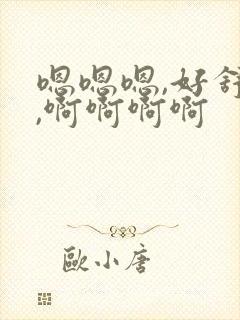 嗯嗯嗯,好舒
,啊啊啊啊
歐小唐